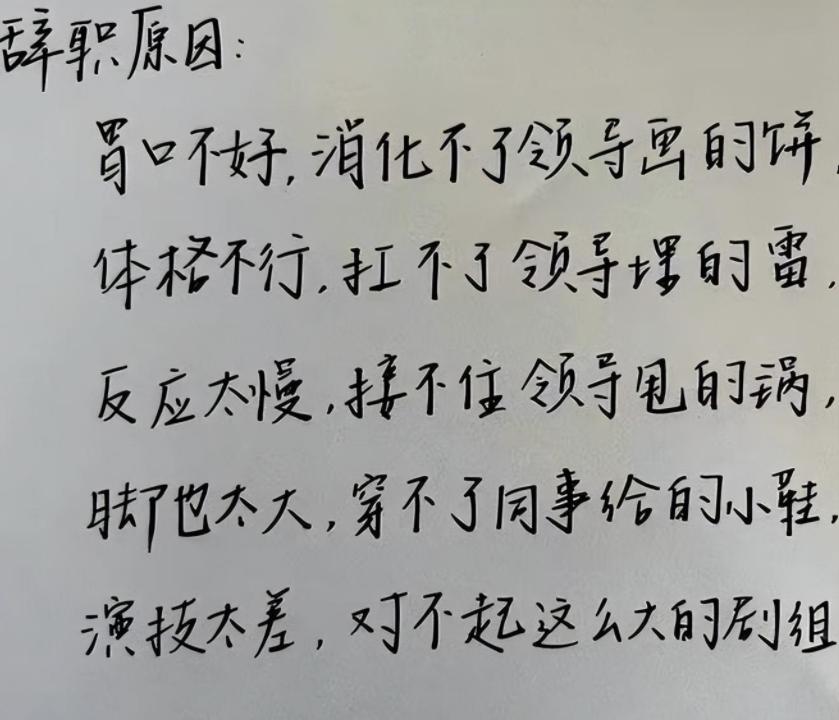 辞职原因:
胃口不好,消化不了领导画的饼,
体格不行,扛不了领导埋的雷,
反应太慢,接不住领导甩的锅,
脚也太大,穿不了同事给的小鞋,
演技太差,对不起这么大的剧组